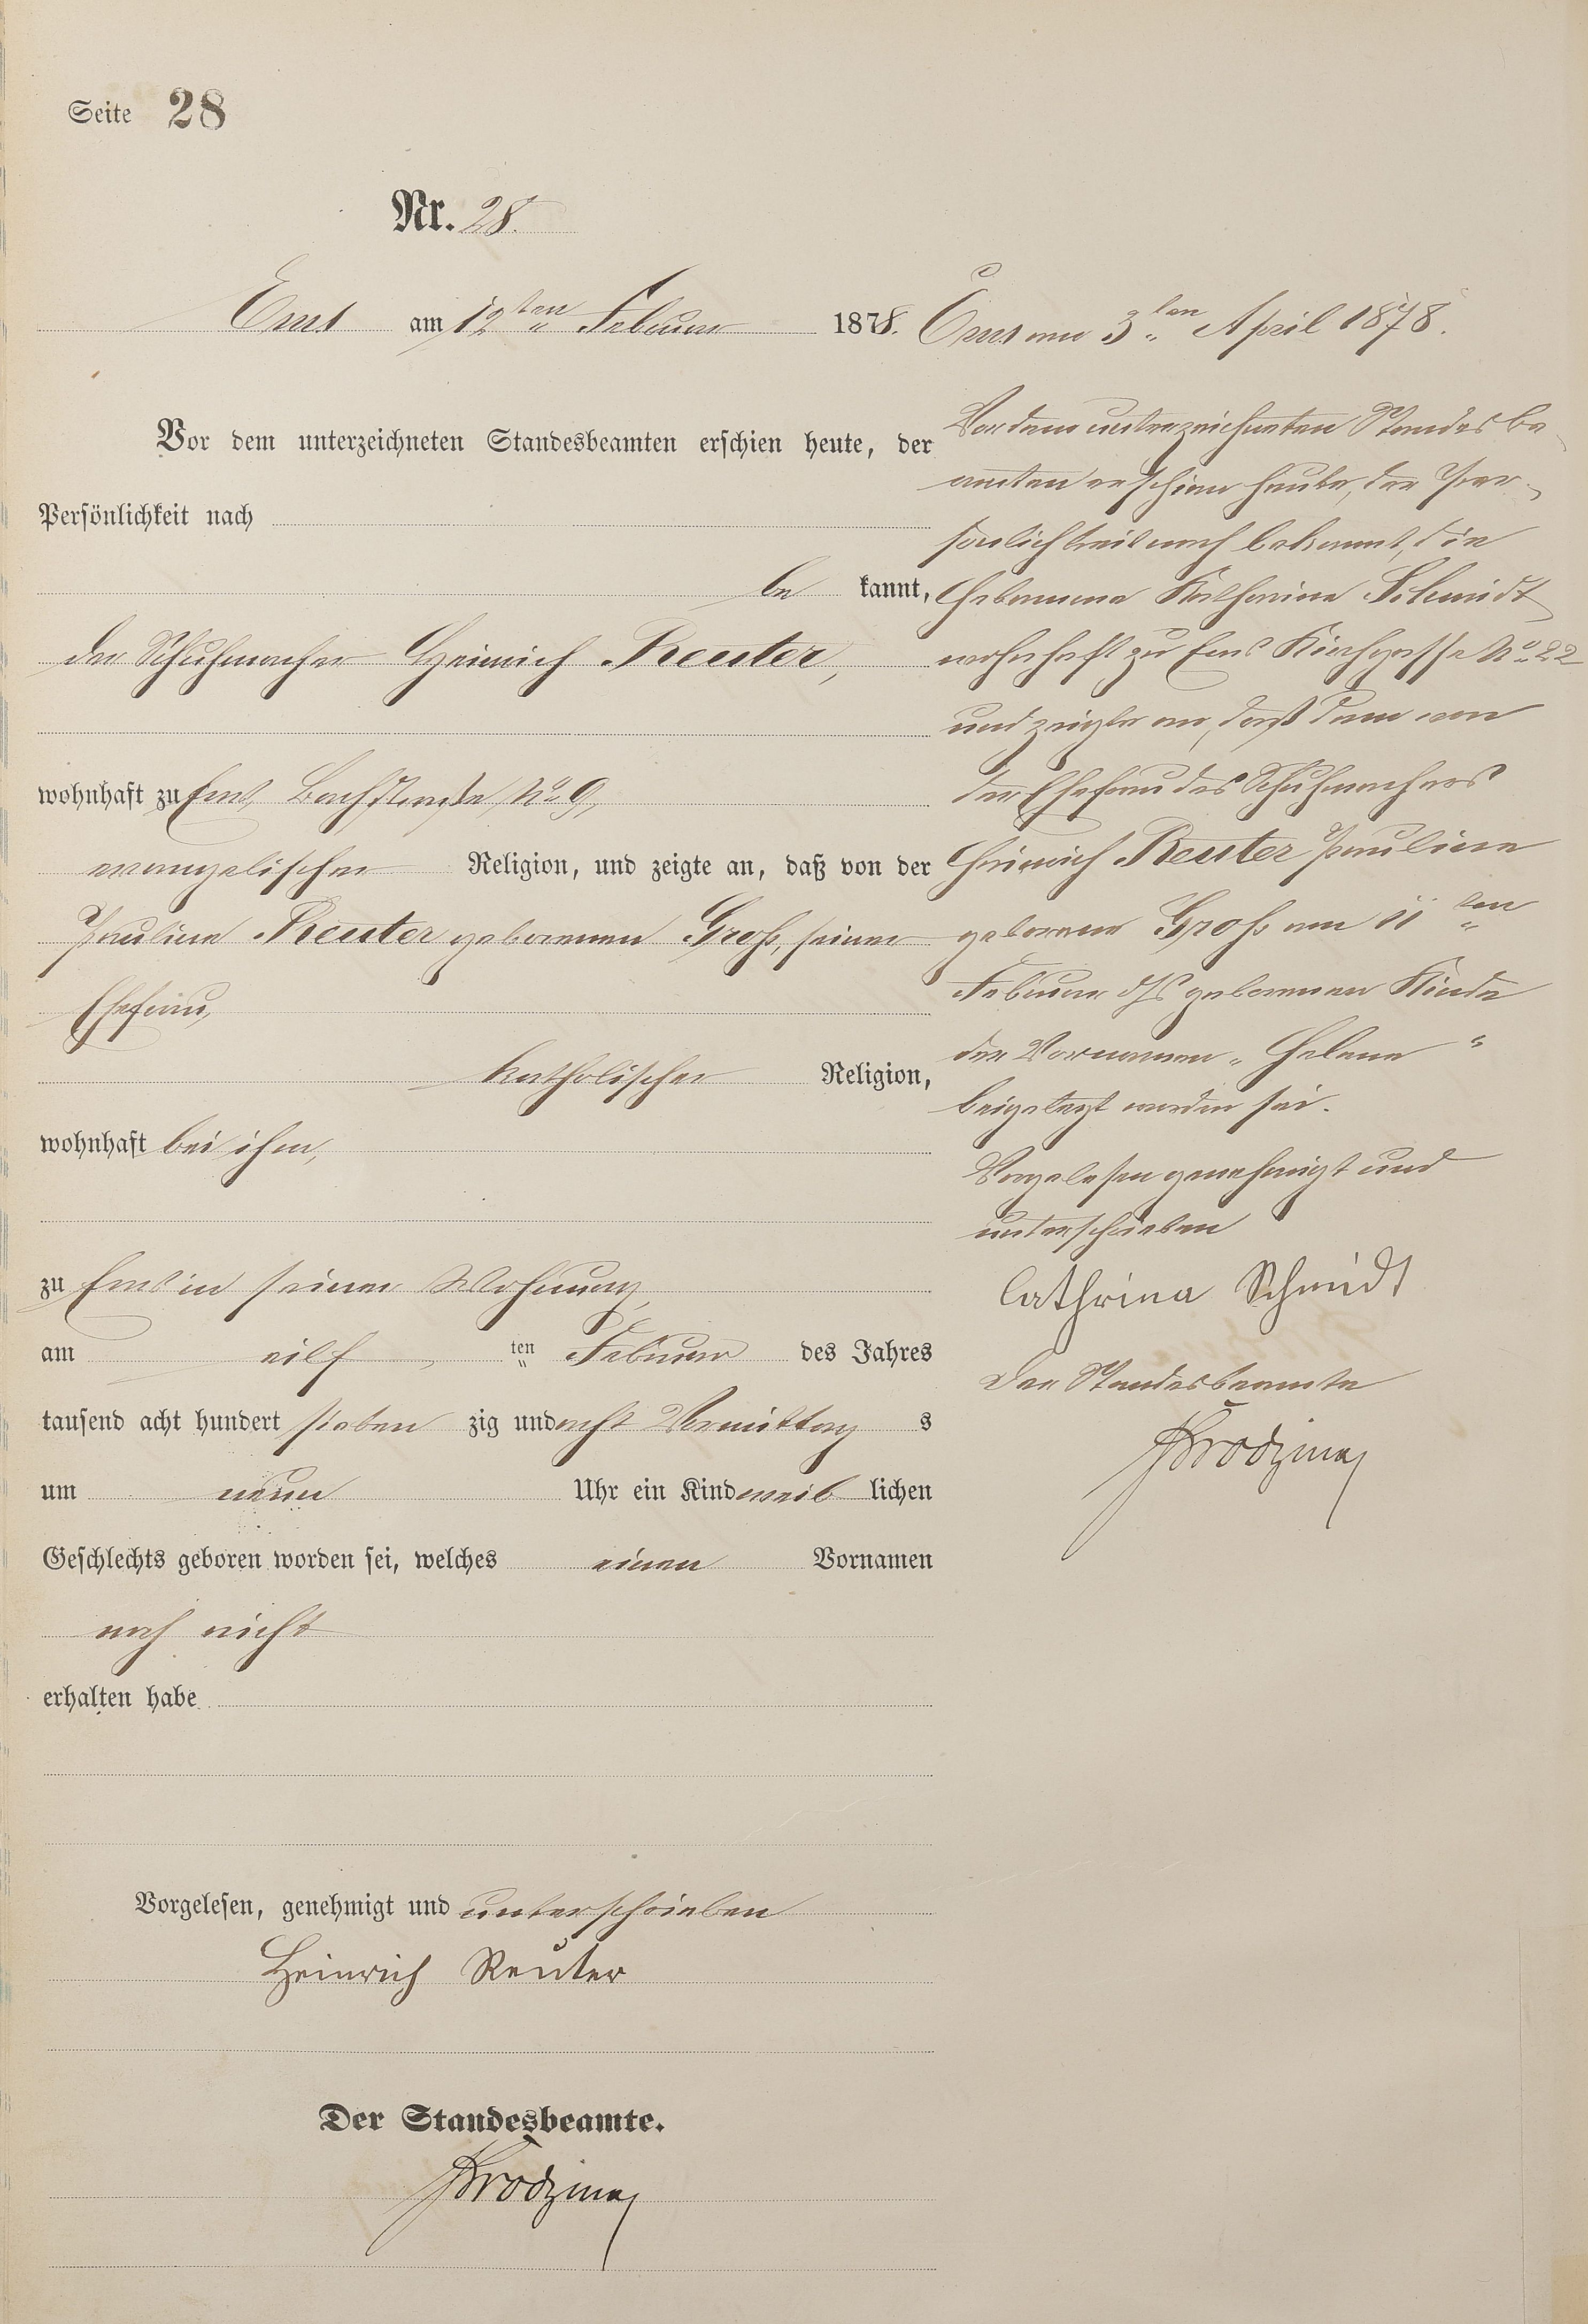 Seite 28
Nr. 28.
Ems am 12ten Februar 1878.
Vor dem unterzeichneten Standesbeamten erschien heute, der
Persönlichkeit nach
be kannt,
der Schuhmacher Heinrich Reuter,
wohnhaft zu Ems, Bachstraße No 9,
evangelischer Religion, und zeigte an, daß von der
Pauline Reuter geborenen Groß, seiner
Ehefrau,
katholischer Religion,
wohnhaft bei ihm,
zu Ems in seiner Wohnung,
am eilf ten Februar des Jahres
tausend acht hundert sieben zig und acht Vormittag s
um neun Uhr ein Kind weib lichen
Geschlechts geboren worden sei, welches einen Vornamen
noch nicht
erhalten habe
Vorgelesen, genehmigt und unterschrieben
Heinrich Reuter
Der Standesbeamte.
Ems am 3ten April 1878.
Vor dem unterzeichneten Standesbe-
amten erschien heute, der Per-
sönlichkeit nach bekannt, die
Hebamme Katharina Schmidt
wohnhaft zu Ems Kirchgasse No 22
und zeigte an, daß dem von
der Ehefrau des Schuhmachers
Heinrich Reuter Pauline
geborene Groß am 11ten
Februar djs geborenen Kinde
der Vornamen „Helene"
beigelegt worden sei.
Vorgelesen genehmigt und
unterschrieben
Cathrina Schmidt
Der Standesbeamte